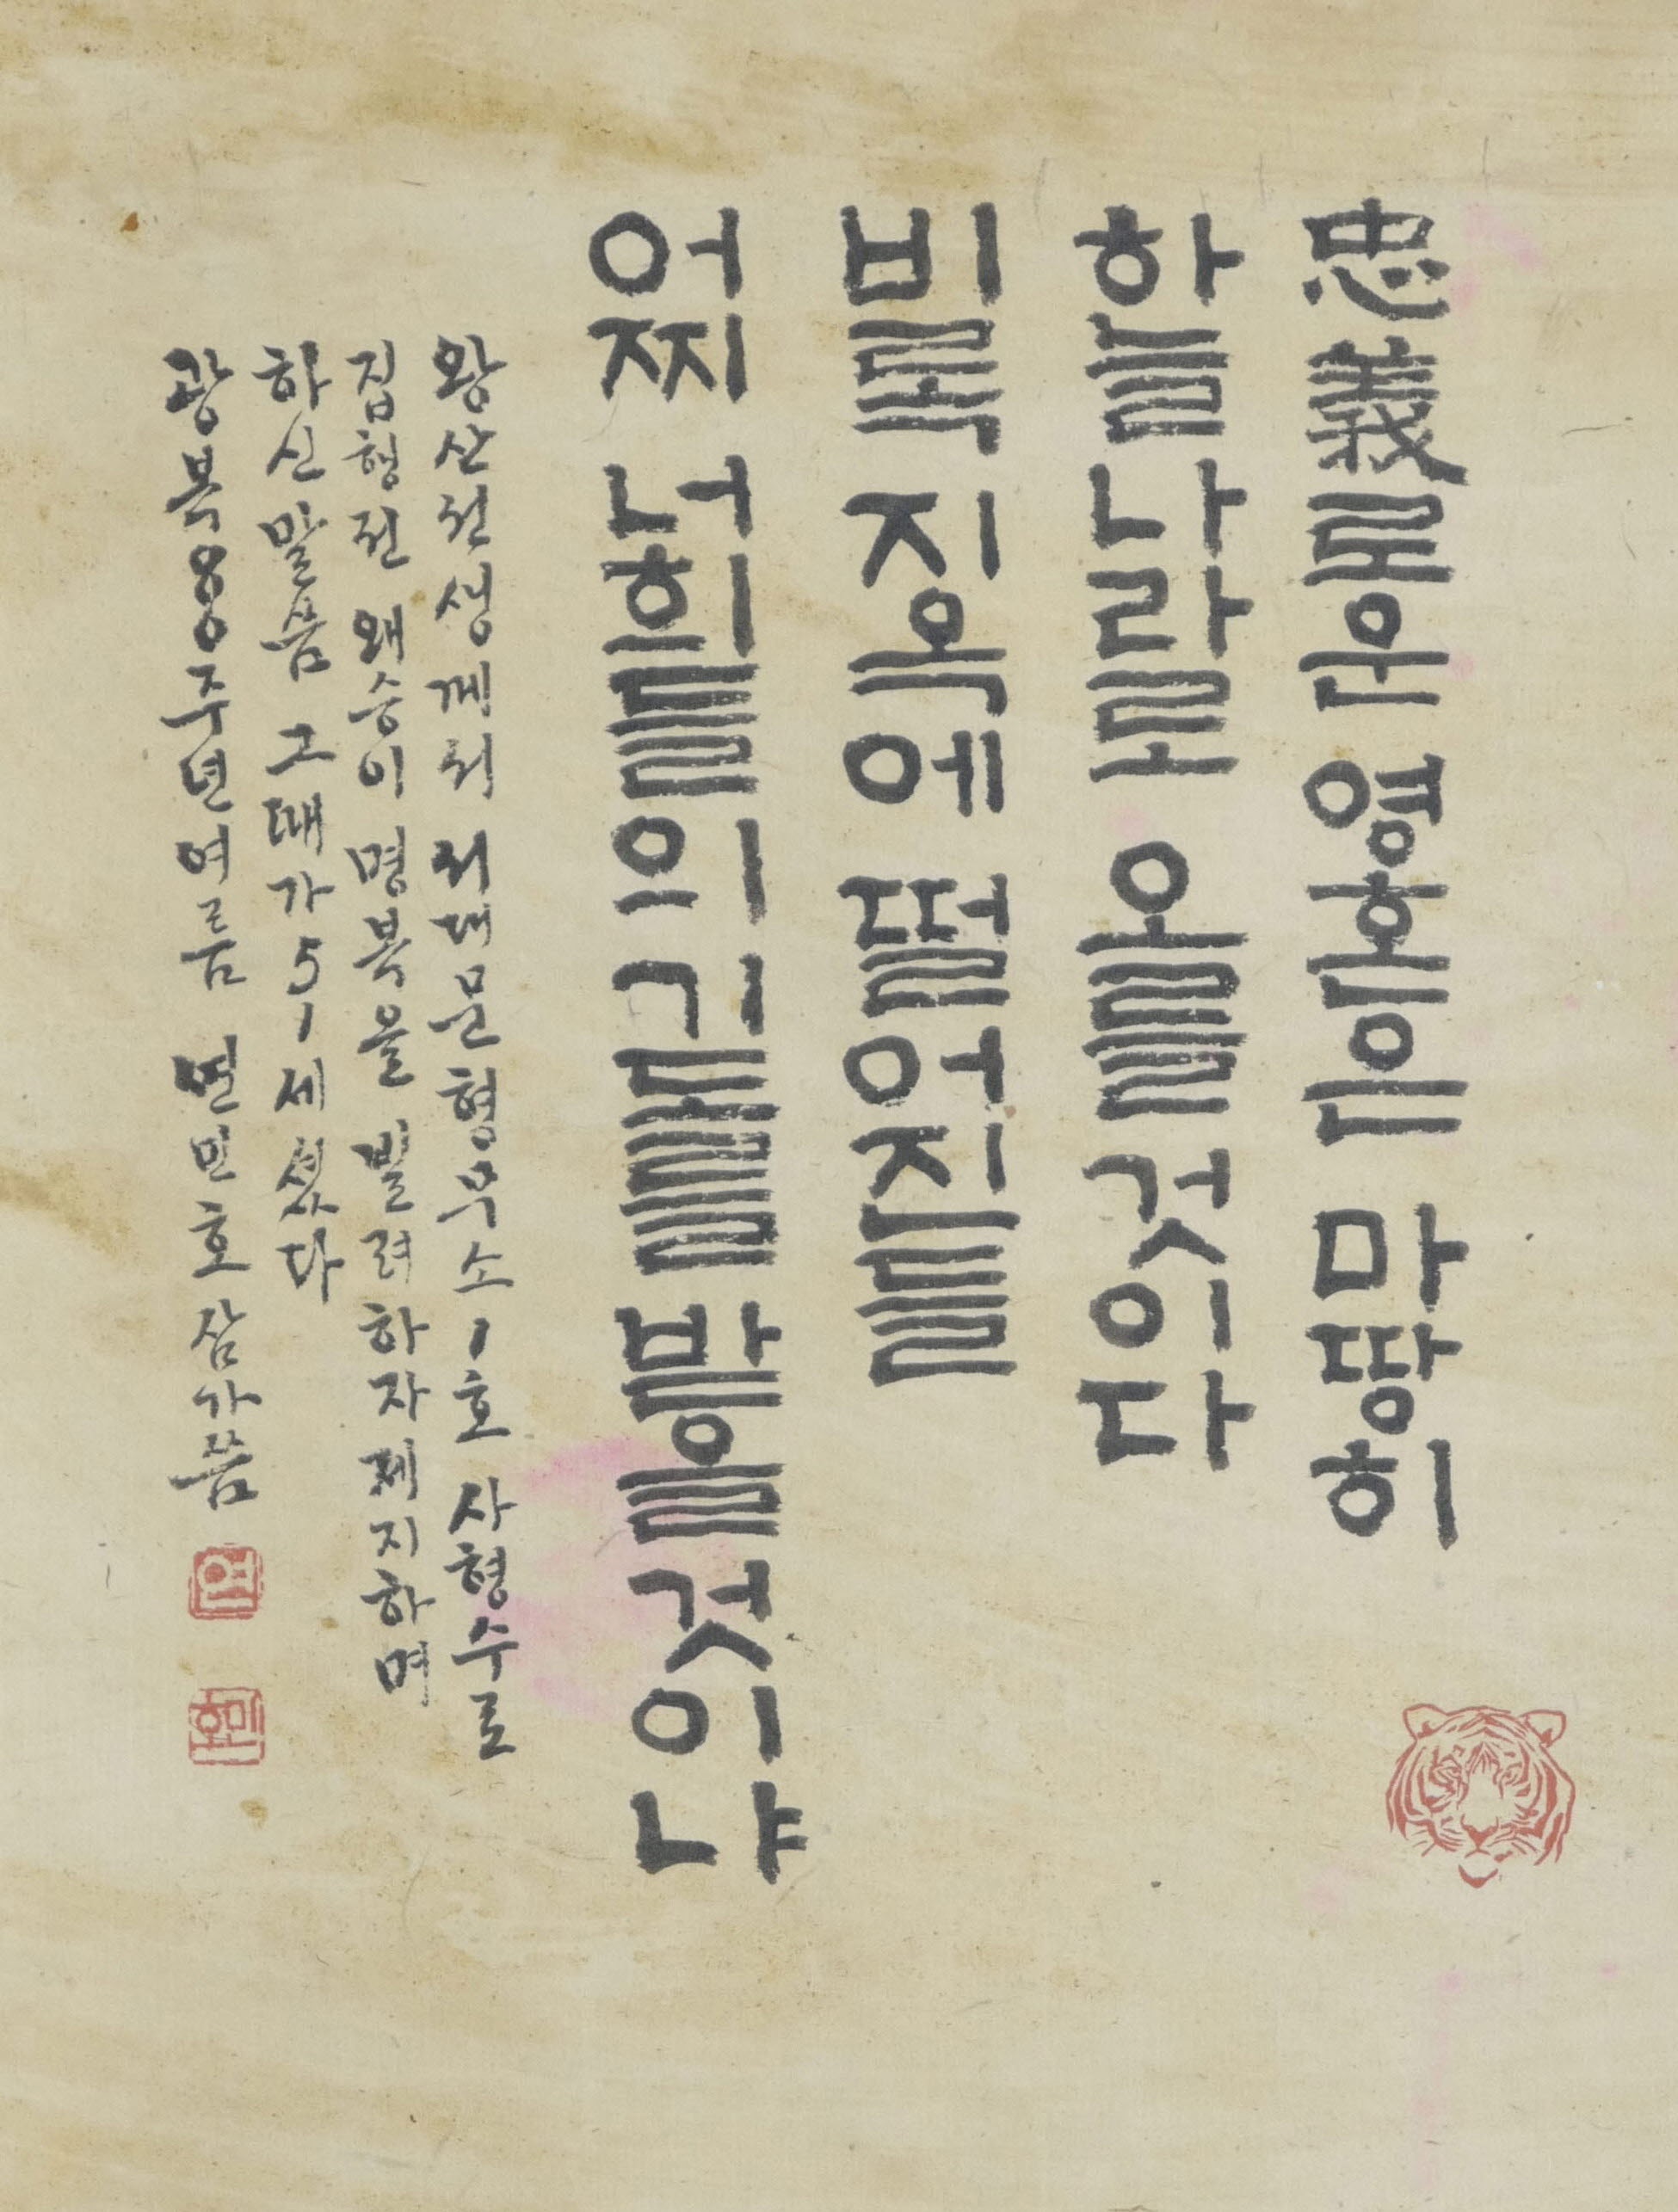 忠義로운 영혼은 마땅히
하늘나라로 오를것이다
비록 지옥에 떨어진들
어찌 너희들의 기도를 받을것이냐
왕산선생께서 서대문형무소1호 사형수로
집형전 왜승이 명복을 빌려하자 제지하며
하신 말씀 그때가 51세셨다
광복80주년여름 연민호 삼가씀
연
민호